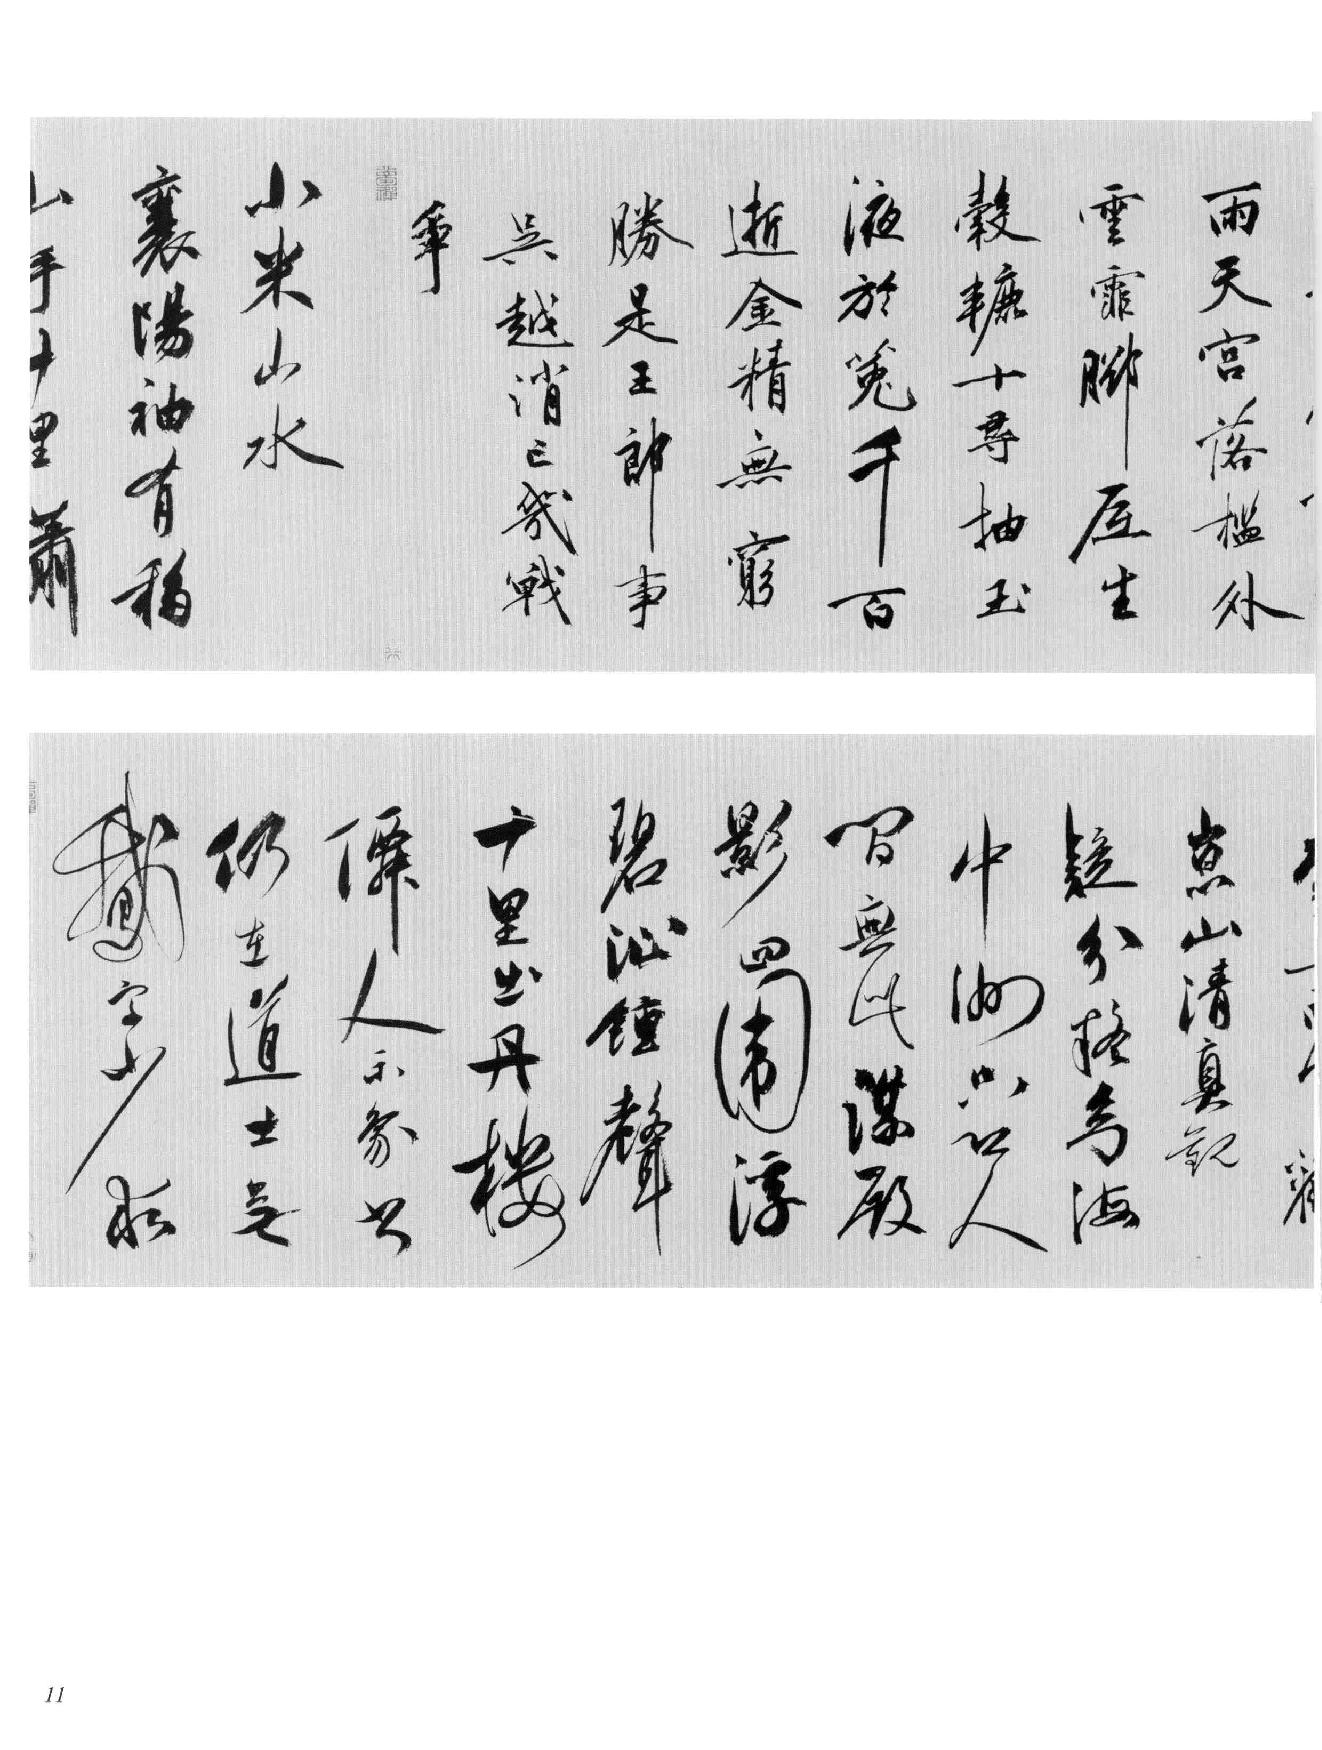 雨天宮落檻外
雲霏腳底生
轂轆十尋抽玉
液於菟千百
逝金精無窮
勝是王郎事
吳越消亡幾戰
爭
小米山水
襄陽袖有移
山手十里蕭
崇山清真觀
疑分格為海
中洲只以人
間無此謀殿
影四圍浮
碧沁鐘聲
十里出丹樓
僊人示象書
仍在道士是
鵞字不求
11